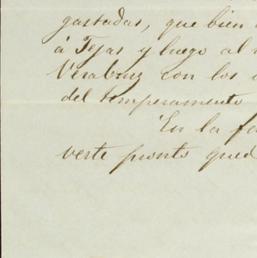 gastadas, que bien
á Tejas y luego al
Veracruz con los
del temperamento
En la
verte pronto